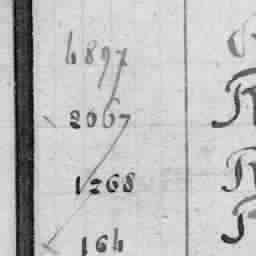 4897
2067
1268
164